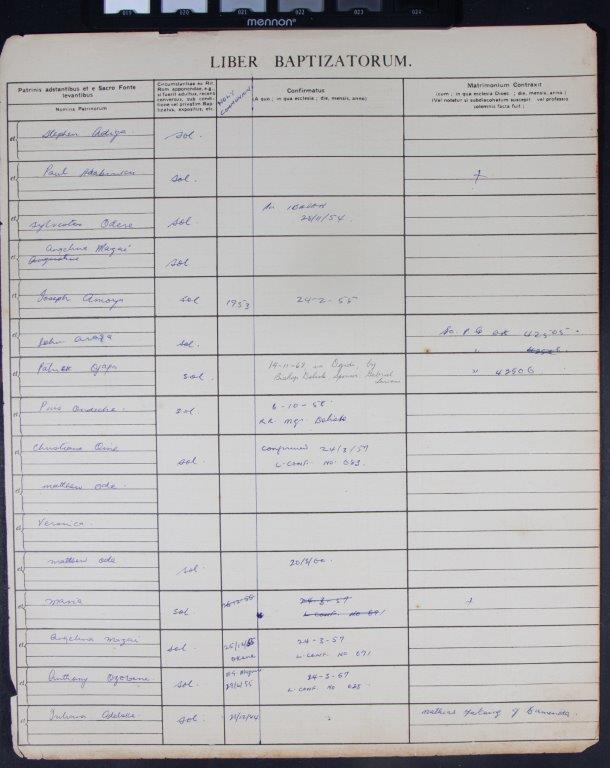 020 021 022 023 024
mennon
LIBER BAPTIZATORUM.
Patrinis adstantibus et e Sacro Fonte
levantibus
Nomina Patrinorum
Circumstantiae ex Rit.
Rom. apponendae, e.g.,
si fuerit adultus, recens
conversus, sub condi-
tione vel privatim Bap-
tizatus, expositus, etc.
HOLY
COMMUNION
Confirmatus
(A quo ; in qua ecclesia ; die, mensis, anno)
Matrimonium Contraxit
(cum ; in qua ecclesia Dioec. ; die, mensis, anno)
(Vel notetur si subdiaconatum suscepit vel professio
solemnis facta fuit.)
Stephen Adiga sol.
Paul sol. +
In IBADAN
Sylvester Odere sol. 28/11/54.
Angelina Magai
sol
Joseph Amoya sol 1953 24-2-55
John Araga sol. 42505.
Patrick Oyapa sol. 19-11-67 in by
Bishop Gabriel
" 42506
Pius Onduche. sol. 6-10-56.
R.R. Mgr.
Christiana Oine confirmed 24/3/57
sol. L. CONF. NO 083.
Matthew Ode.
Veronica.
Matthew Ode sol. 20/3/60.
Maria sol. 25-12-55 24-3-57 +
L. CONF. NO 071
Angelina Magai sol. 25/12/55 24-3-57
L. CONF. NO 071
Anthony sol. 29/6/55 24-3-57
L. CONF. NO 025
Juliana Odelola sol 25/12/44 Mathias of Bamenda.